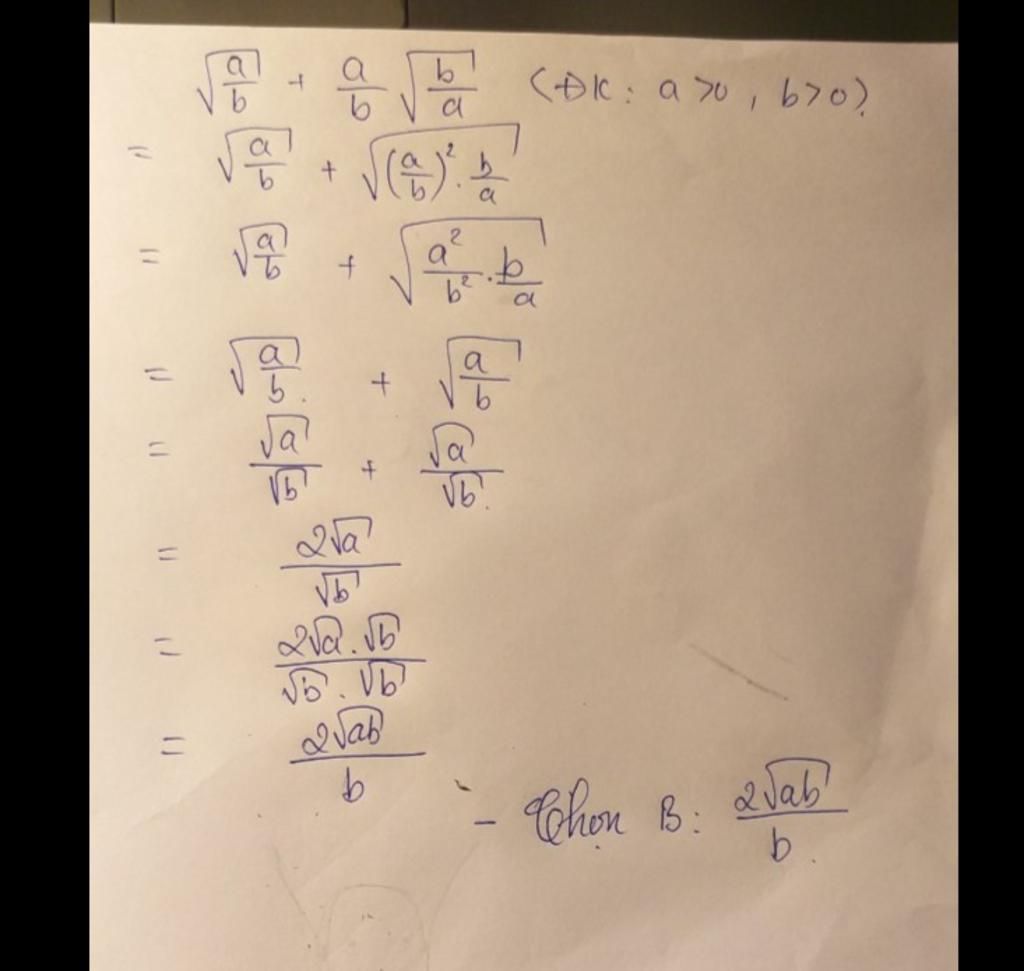 √(a/b) + a/b √(b/a) (ĐK: a>0, b>0).
= √(a/b) + √((a/b)² . b/a)
= √(a/b) + √(a²/b² . b/a)
= √(a/b) + √(a/b)
= √a/√b + √a/√b.
= 2√a/√b
= 2√a . √b / √b . √b
= 2√ab/b
- Chọn B: 2√ab/b.